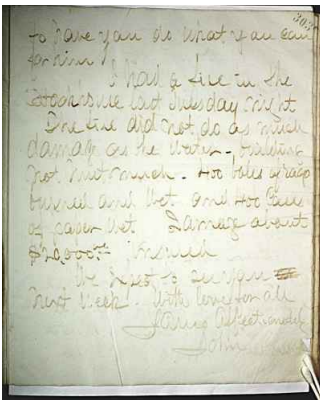 303
to have you do what you can
for him
I had a fire in the
Stockhouse last Tuesday night
The fire did not do as much
damage as the water - building
not hurt much. 400 bales of rags
burned and wet and 400 cases
of paper wet Damage about
$20,000 Insured
We hope to see you
next week. With love for all
Yours Affectionately
John